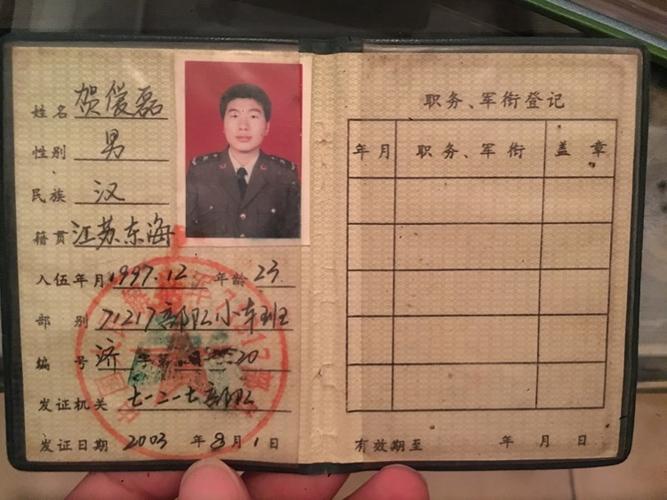 姓名 贺俊磊
性别 男
民族 汉
籍贯 江苏东海
入伍年月 1997.12 年龄 23
部别 71217部队小车班
编号 济 字第 20
发证机关 七一二一七部队
发证日期 2003 年 8 月 1 日
职务、军衔登记
年月 职务、军衔 盖章
有效期至 年 月 日